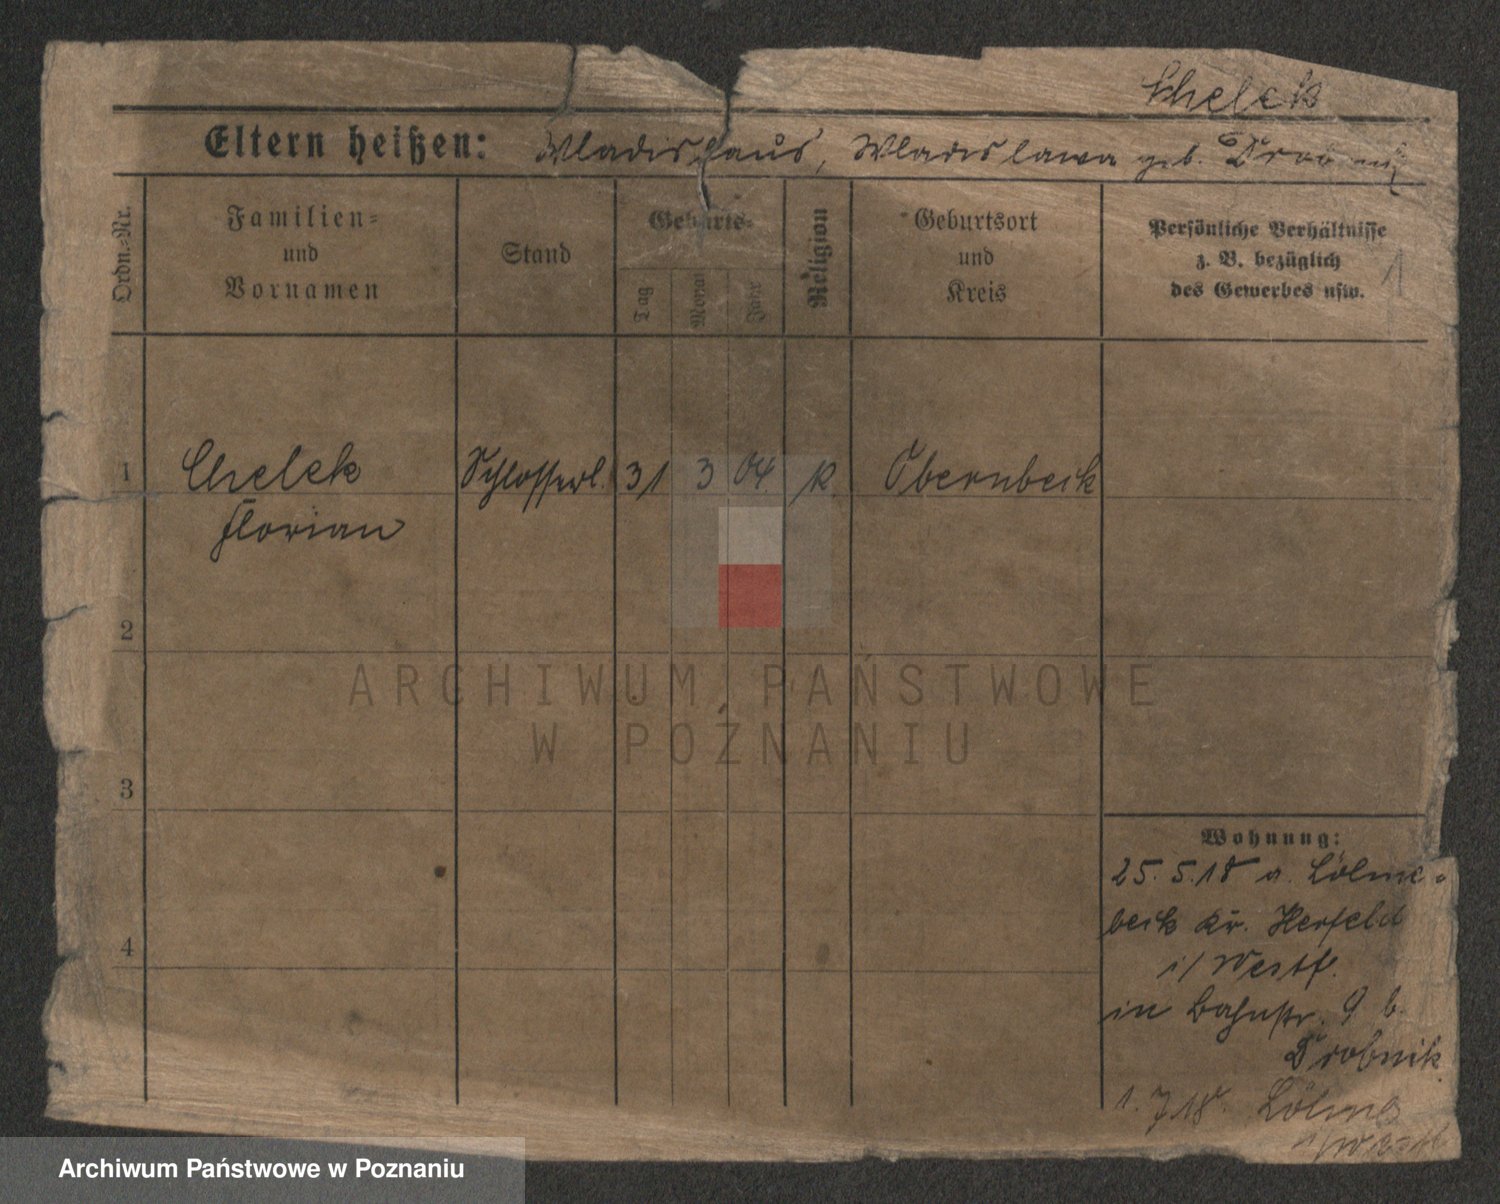 Chelek
Eltern heißen: Wladislaus, Wladislawa geb. Drobnik
Ordn.-Nr.
Familien-
und
Vornamen
Stand
Geburts-
Tag
Monat
Jahr
Religion
Geburtsort
und
Kreis
Persönliche Verhältnisse
z. B. bezüglich
des Gewerbes usw.
1
1 Chelek Schlosserl. 31 3 04. k. Obernbeck
Florian
2
3
4
Wohnung:
25. 5. 18 a. Löhne-
beck Kr. Herfeld
i/ Westf.
in Bahnstr. 9 b.
Drobnik
1. 7 18. Löhne
ARCHIWUM PAŃSTWOWE
W POZNANIU
Archiwum Państwowe w Poznaniu